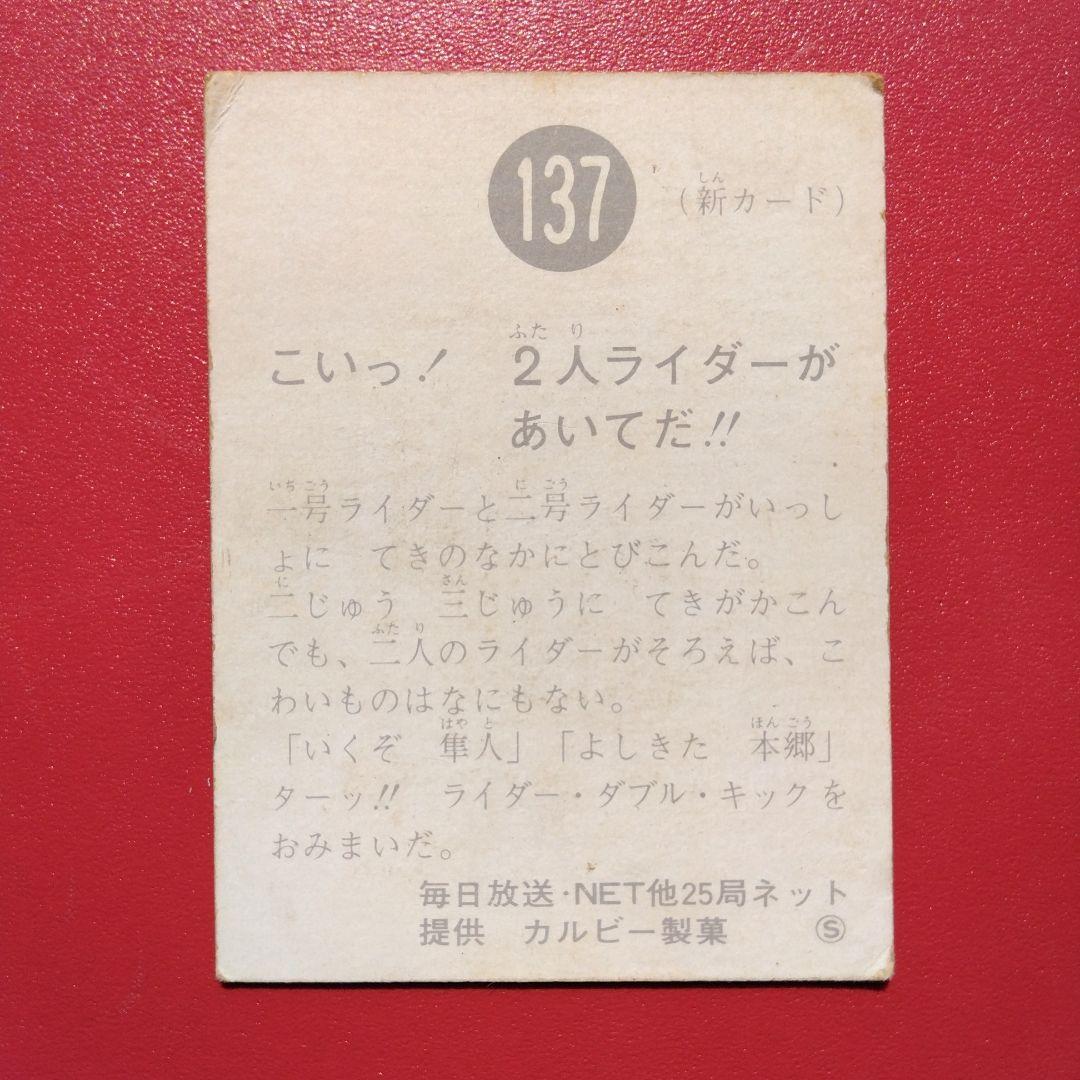 137
(新カード)
しん
こいっ! 2人ライダーが
ふたり
あいてだ!!
一号ライダーと二号ライダーがいっし
いちごう にごう
ょに てきのなかにとびこんだ。
二じゅう 三じゅうに てきがかこん
に さん
でも、二人のライダーがそろえば、こ
ふたり
わいものはなにもない。
「いくぞ 隼人」「よしきた 本郷」
はやと ほんごう
ターッ!! ライダー・ダブル・キックを
おみまいだ。
毎日放送・NET他25局ネット
提供 カルビー製菓 Ⓢ